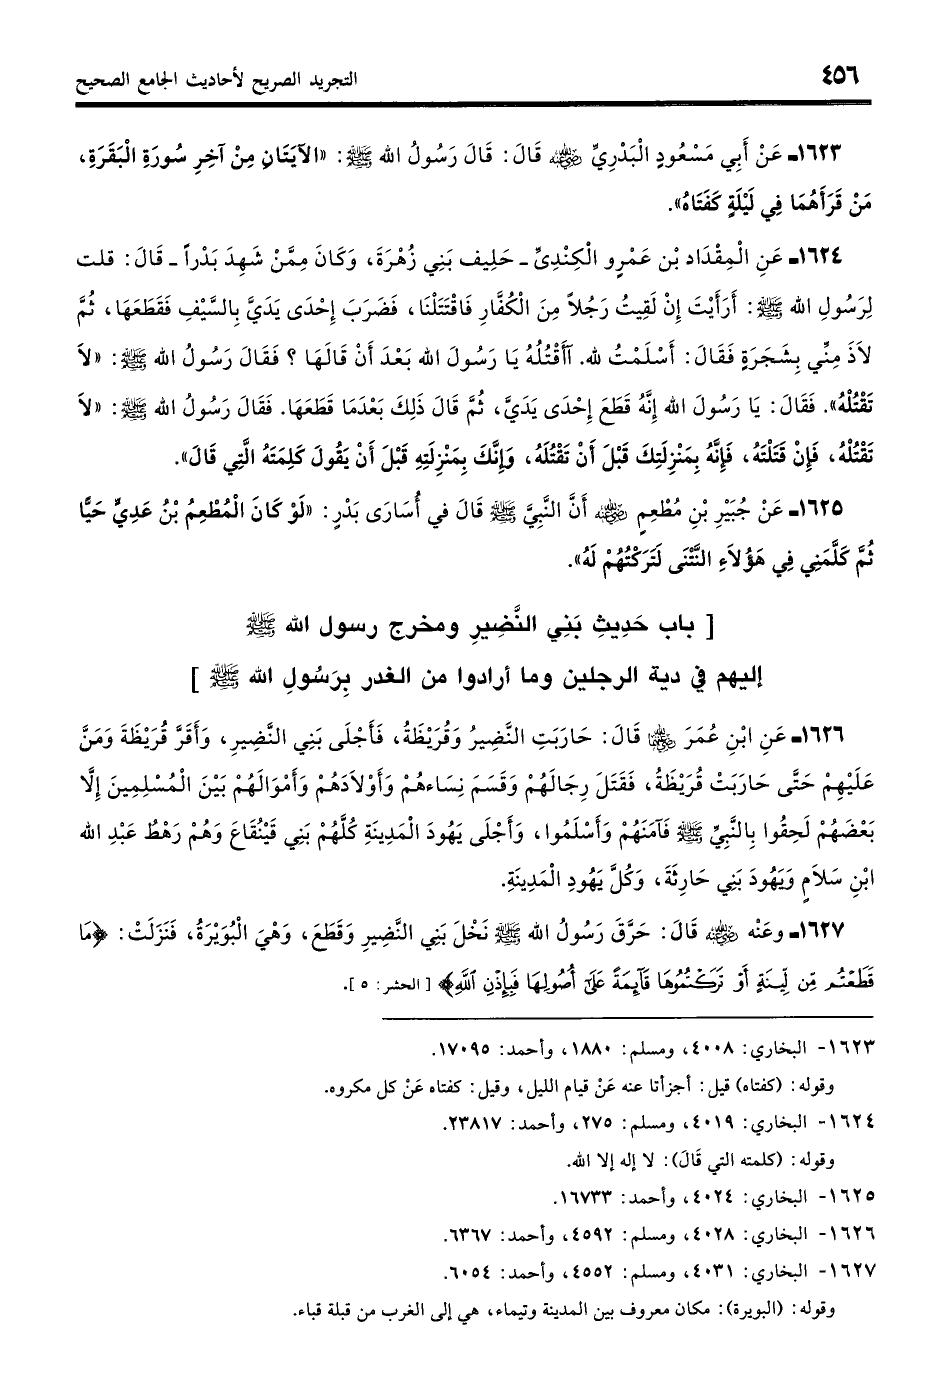 ٤٥٦ التجريد الصريح لأحاديث الجامع الصحيح
١٦٢٣ـ عَنْ أَبِي مَسْعُودٍ الْبَدْرِيِّ ﷺ قَالَ: قَالَ رَسُولُ الله ﷺ: «الآيَتَانِ مِنْ آخِرِ سُورَةِ الْبَقَرَةِ،
مَنْ قَرَأَهُمَا فِي لَيْلَةٍ كَفَتَاهُ».
١٦٢٤ـ عَنِ الْمِقْدَادِ بْنِ عَمْرٍو الْكِنْدِيِّ ـ حَلِيفِ بَنِي زُهْرَةَ، وَكَانَ مِمَّنْ شَهِدَ بَدْراً ـ قَالَ: قلت
لِرَسُولِ الله ﷺ: أَرَأَيْتَ إِنْ لَقِيتُ رَجُلاً مِنَ الْكُفَّارِ فَاقْتَتَلْنَا، فَضَرَبَ إِحْدَى يَدَيَّ بِالسَّيْفِ فَقَطَعَهَا، ثُمَّ
لاَذَ مِنِّي بِشَجَرَةٍ فَقَالَ: أَسْلَمْتُ لله. آأَقْتُلُهُ يَا رَسُولَ الله بَعْدَ أَنْ قَالَهَا؟ فَقَالَ رَسُولُ الله ﷺ: «لاَ
تَقْتُلْهُ». فَقَالَ: يَا رَسُولَ الله إِنَّهُ قَطَعَ إِحْدَى يَدَيَّ، ثُمَّ قَالَ ذَلِكَ بَعْدَمَا قَطَعَهَا. فَقَالَ رَسُولُ الله ﷺ: «لاَ
تَقْتُلْهُ، فَإِنْ قَتَلْتَهُ، فَإِنَّهُ بِمَنْزِلَتِكَ قَبْلَ أَنْ تَقْتُلَهُ، وَإِنَّكَ بِمَنْزِلَتِهِ قَبْلَ أَنْ يَقُولَ كَلِمَتَهُ الَّتِي قَالَ».
١٦٢٥ـ عَنْ جُبَيْرِ بْنِ مُطْعِمٍ رضي الله عنه أَنَّ النَّبِيَّ ﷺ قَالَ في أُسَارَى بَدْرٍ: «لَوْ كَانَ الْمُطْعِمُ بْنُ عَدِيٍّ حَيًّا
ثُمَّ كَلَّمَنِي فِي هَؤُلاَءِ النَّتْنَى لَتَرَكْتُهُمْ لَهُ».
[ باب حَدِيثِ بَنِي النَّضِيرِ ومخرج رسول الله ﷺ
إليهم في دية الرجلين وما أرادوا من الغدر بِرَسُولِ الله ﷺ ]
١٦٢٦ـ عَنِ ابْنِ عُمَرَ رضي الله عنهما قَالَ: حَارَبَتِ النَّضِيرُ وَقُرَيْظَةُ، فَأَجْلَى بَنِي النَّضِيرِ، وَأَقَرَّ قُرَيْظَةَ وَمَنَّ
عَلَيْهِمْ حَتَّى حَارَبَتْ قُرَيْظَةُ، فَقَتَلَ رِجَالَهُمْ وَقَسَمَ نِسَاءهُمْ وَأَوْلاَدَهُمْ وَأَمْوَالَهُمْ بَيْنَ الْمُسْلِمِينَ إِلَّا
بَعْضَهُمْ لَحِقُوا بِالنَّبِيِّ ﷺ فَآمَنَهُمْ وَأَسْلَمُوا، وَأَجْلَى يَهُودَ الْمَدِينَةِ كُلَّهُمْ بَنِي قَيْنُقَاعَ وَهُمْ رَهْطُ عَبْدِ الله
ابْنِ سَلاَمٍ وَيَهُودَ بَنِي حَارِثَةَ، وَكُلَّ يَهُودِ الْمَدِينَةِ.
١٦٢٧ـ وعَنْه رضي الله عنه قَالَ: حَرَّقَ رَسُولُ الله ﷺ نَخْلَ بَنِي النَّضِيرِ وَقَطَعَ، وَهْيَ الْبُوَيْرَةُ، فَنَزَلَتْ: ﴿مَا
قَطَعْتُم مِّن لِّينَةٍ أَوْ تَرَكْتُمُوهَا قَآئِمَةً عَلَىٰٓ أُصُولِهَا فَبِإِذْنِ ٱللَّهِ﴾ [الحشر: ٥].
١٦٢٣- البخاري: ٤٠٠٨، ومسلم: ١٨٨٠، وأحمد: ١٧٠٩٥.
وقوله: (كفتاه) قيل: أجزأتا عنه عَنْ قيام الليل، وقيل: كفتاه عَنْ كل مكروه.
١٦٢٤- البخاري: ٤٠١٩، ومسلم: ٢٧٥، وأحمد: ٢٣٨١٧.
وقوله: (كلمته التي قَالَ): لا إله إلا الله.
١٦٢٥- البخاري: ٤٠٢٤، وأحمد: ١٦٧٣٣.
١٦٢٦- البخاري: ٤٠٢٨، ومسلم: ٤٥٩٢، وأحمد: ٦٣٦٧.
١٦٢٧- البخاري: ٤٠٣١، ومسلم: ٤٥٥٢، وأحمد: ٦٠٥٤.
وقوله: (البويرة): مكان معروف بين المدينة وتيماء، هي إلى الغرب من قبلة قباء.